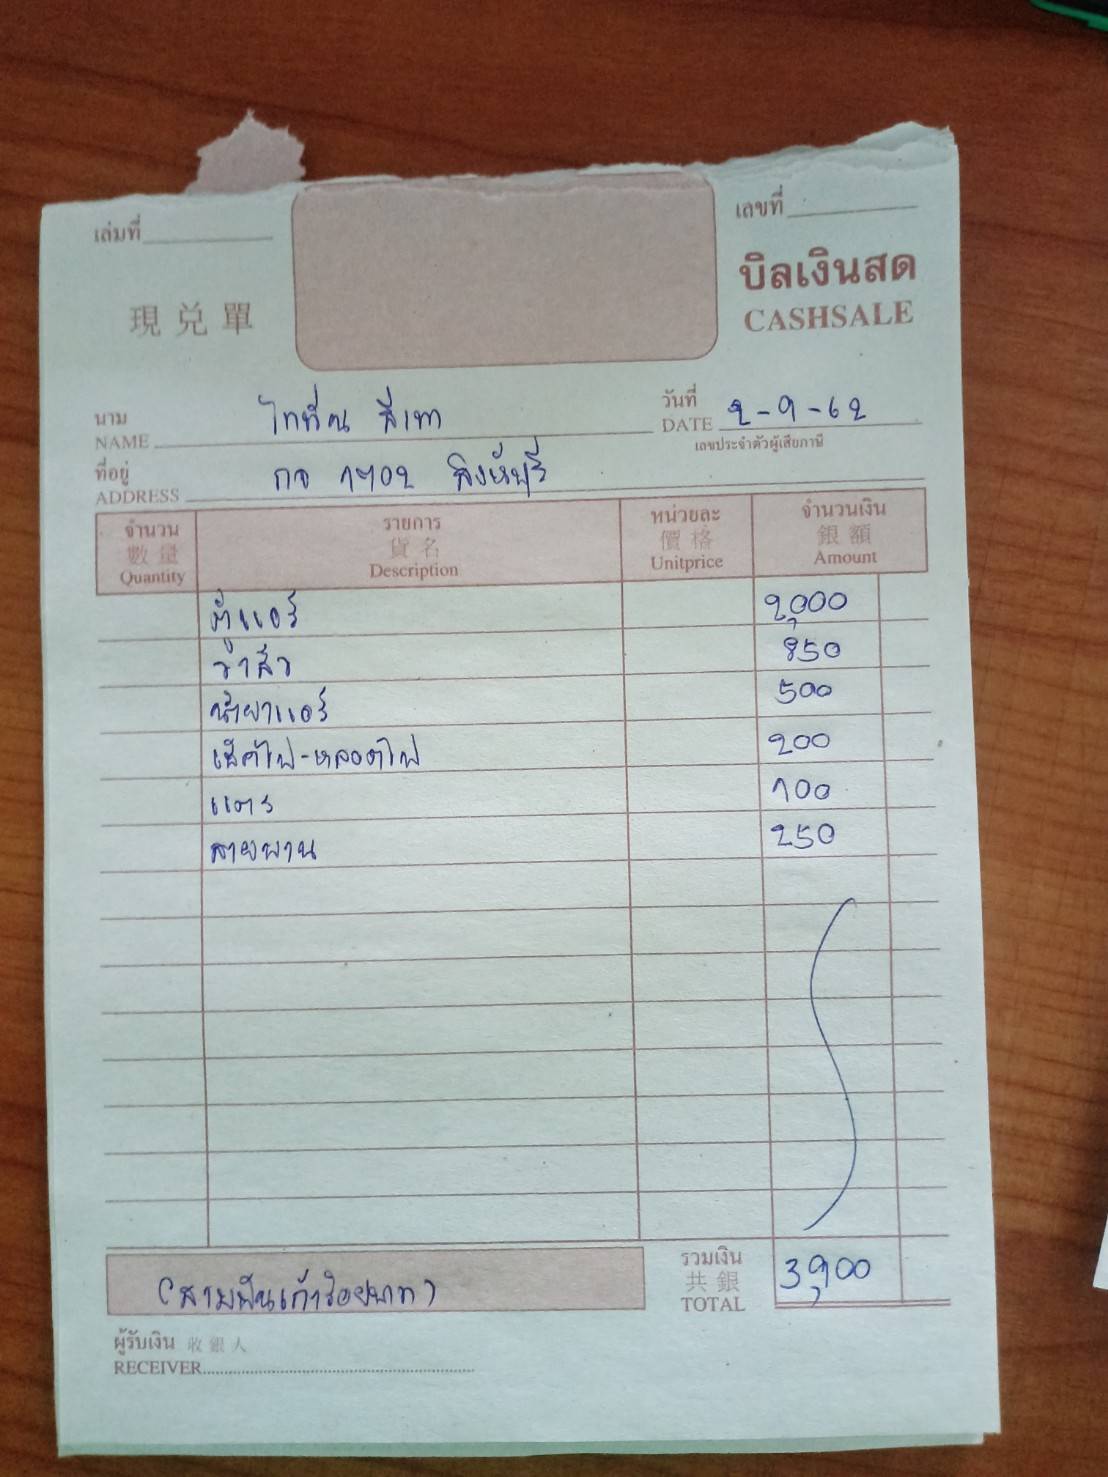 เล่มที่
เลขที่
現兑單
บิลเงินสด
CASHSALE
นาม
NAME ไททัน สีเทา
วันที่
DATE 2-9-62
เลขประจำตัวผู้เสียภาษี
ที่อยู่
ADDRESS กจ 1702 สิงห์บุรี
จำนวน รายการ หน่วยละ จำนวนเงิน
數量 貨名 價格 銀額
Quantity Description Unitprice Amount
ตู้แอร์ 2,000
850
น้ำยาแอร์ 500
เช็คไฟ-หลอดไฟ 200
แตร 100
สายพาน 250
(สามพันเก้าร้อยบาท)
รวมเงิน
共銀
TOTAL 3,900
ผู้รับเงิน 收銀人
RECEIVER